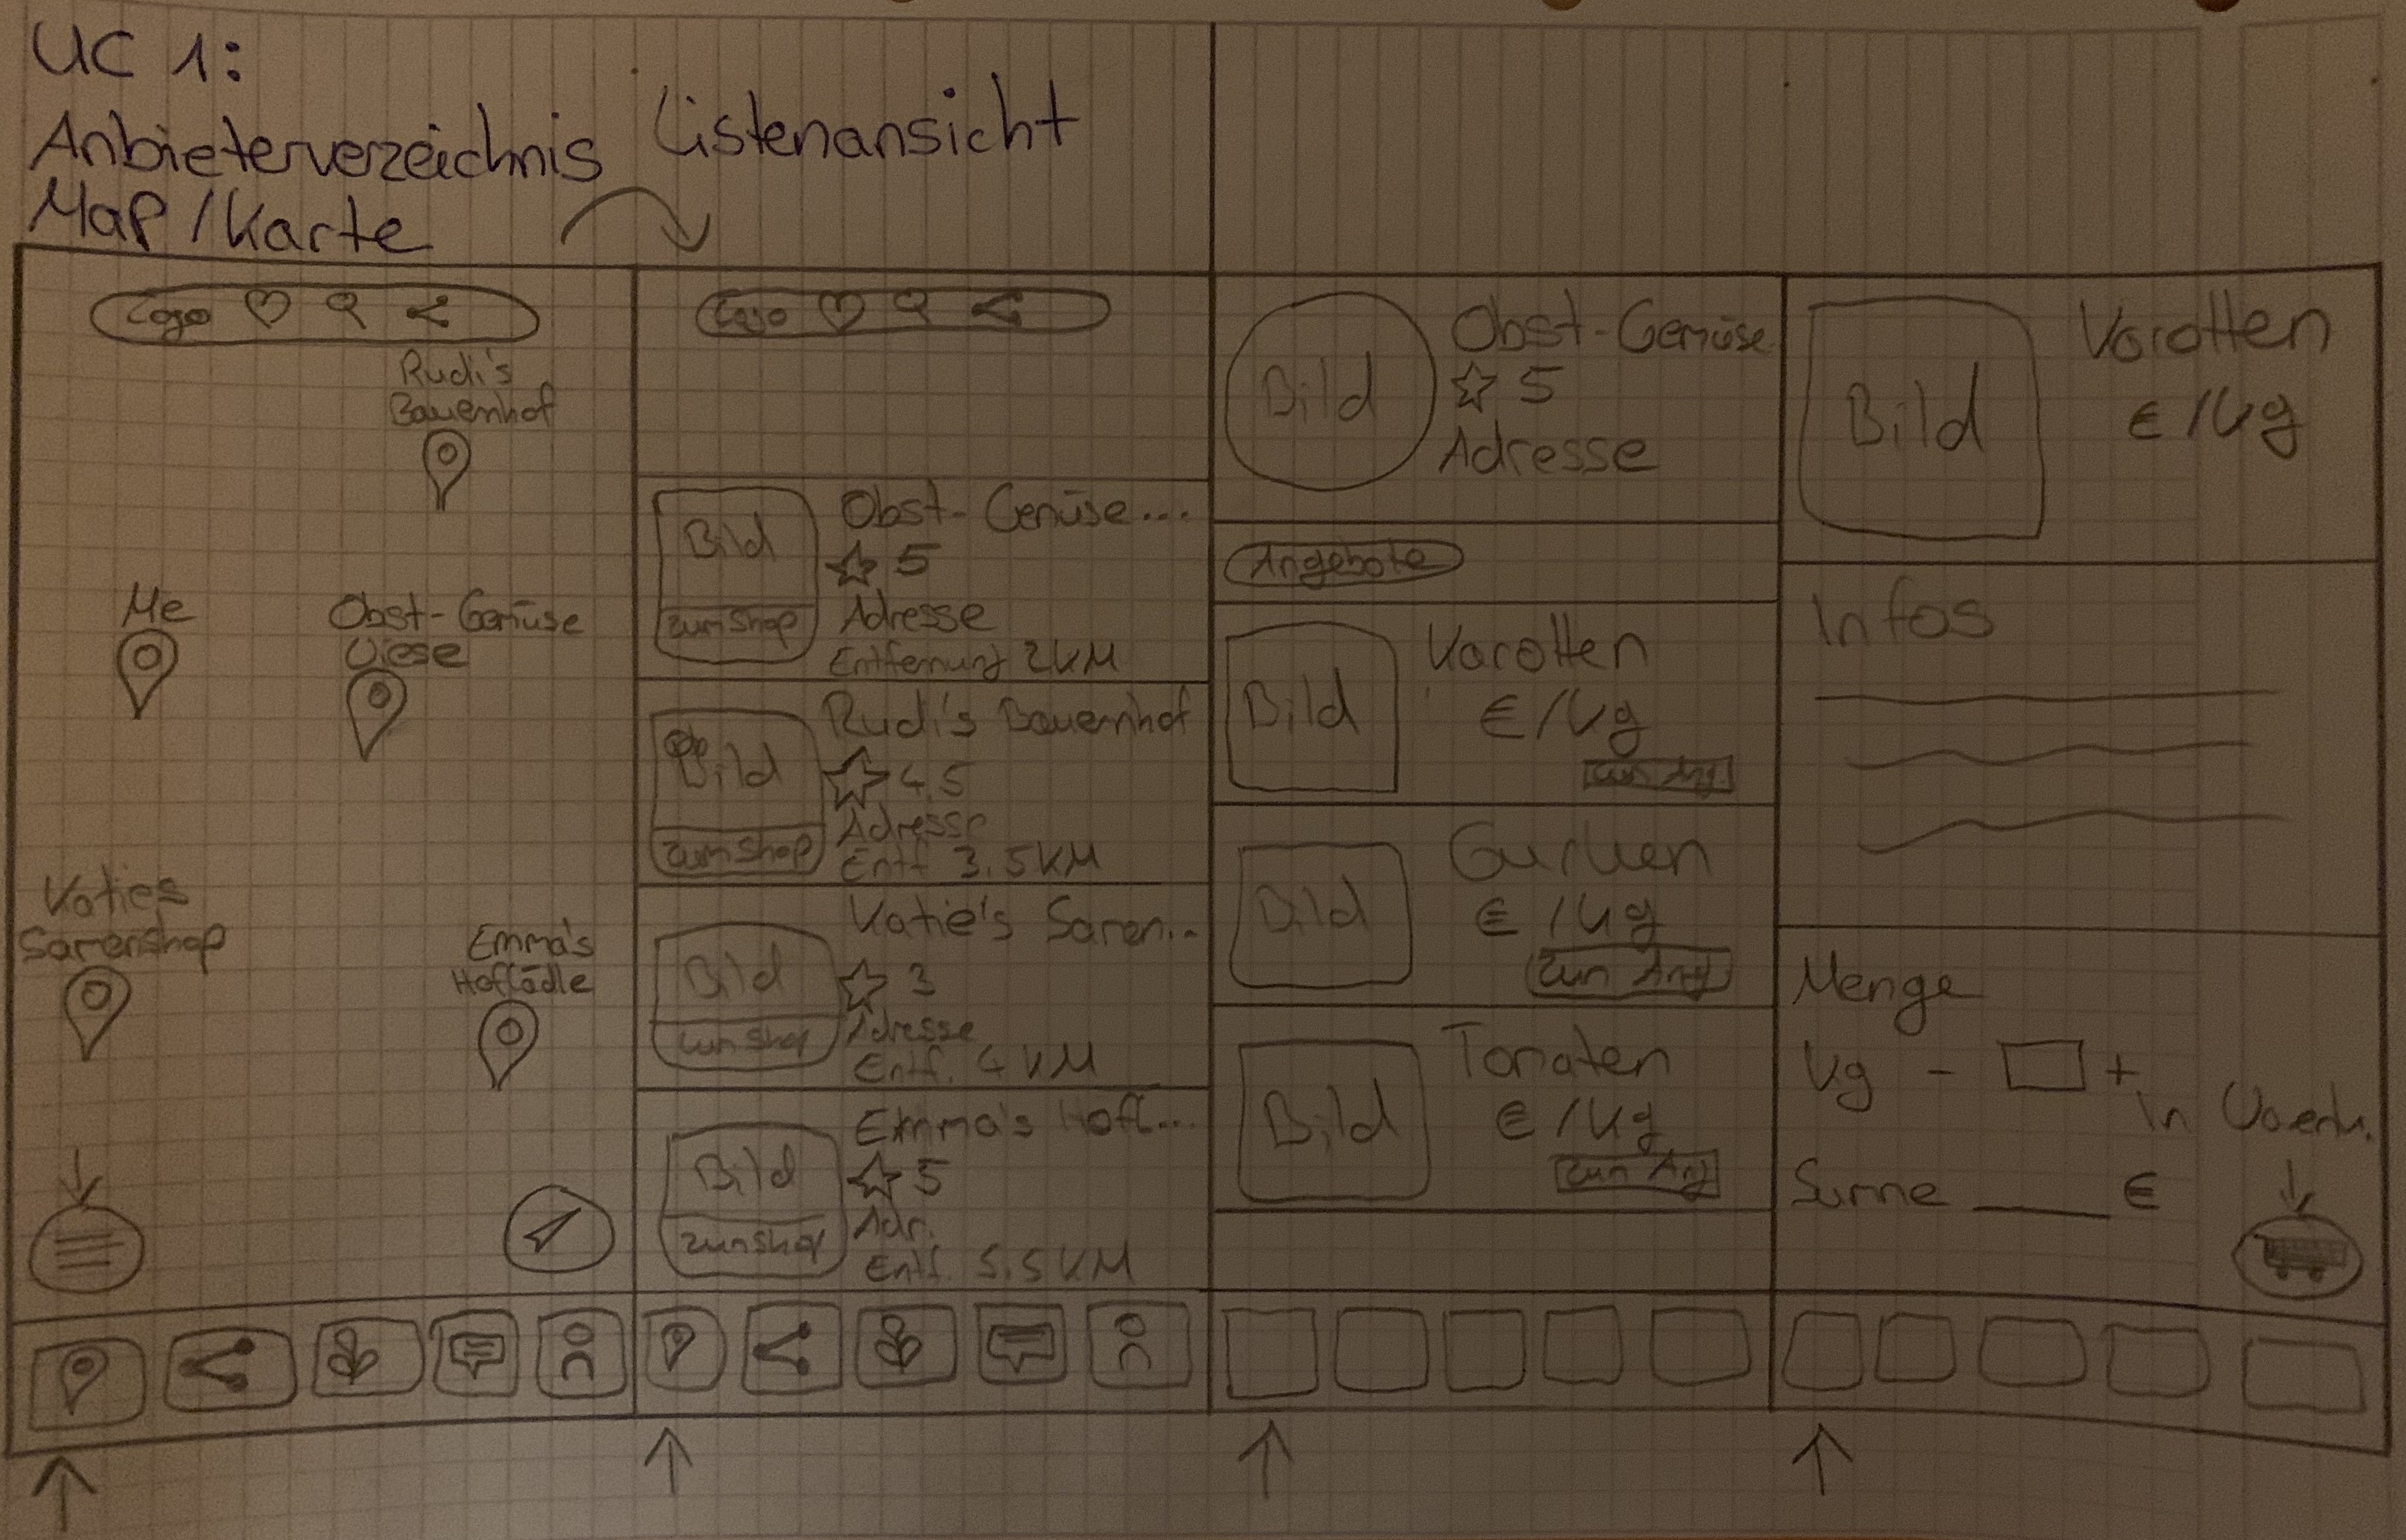 UC 1:
Anbieterverzeichnis
Map/Karte
Listenansicht
Logo
Rudi's
Bauernhof
Me
Obst-Gemüse
Wiese
Katies
Samenshop
Emma's
Hoflädle
Logo
Bild
zum Shop
Obst-Gemüse...
5
Adresse
Entfernung 2KM
Bild
zum Shop
Rudi's Bauernhof
4,5
Adresse
Entf. 3,5KM
Bild
zum Shop
Katie's Samen...
3
Adresse
Entf. 4 KM
Bild
zum Shop
Emma's Hofl...
5
Adr.
Entf. 5,5KM
Bild
Obst-Gemüse
5
Adresse
Angebote
Bild
Karotten
€/kg
zum Ang.
Bild
Gurken
€/kg
zum Ang
Bild
Tomaten
€/kg
zum Ang
Bild
Karotten
€/kg
Infos
Menge
kg - +
in Warenk.
Summe ____ €